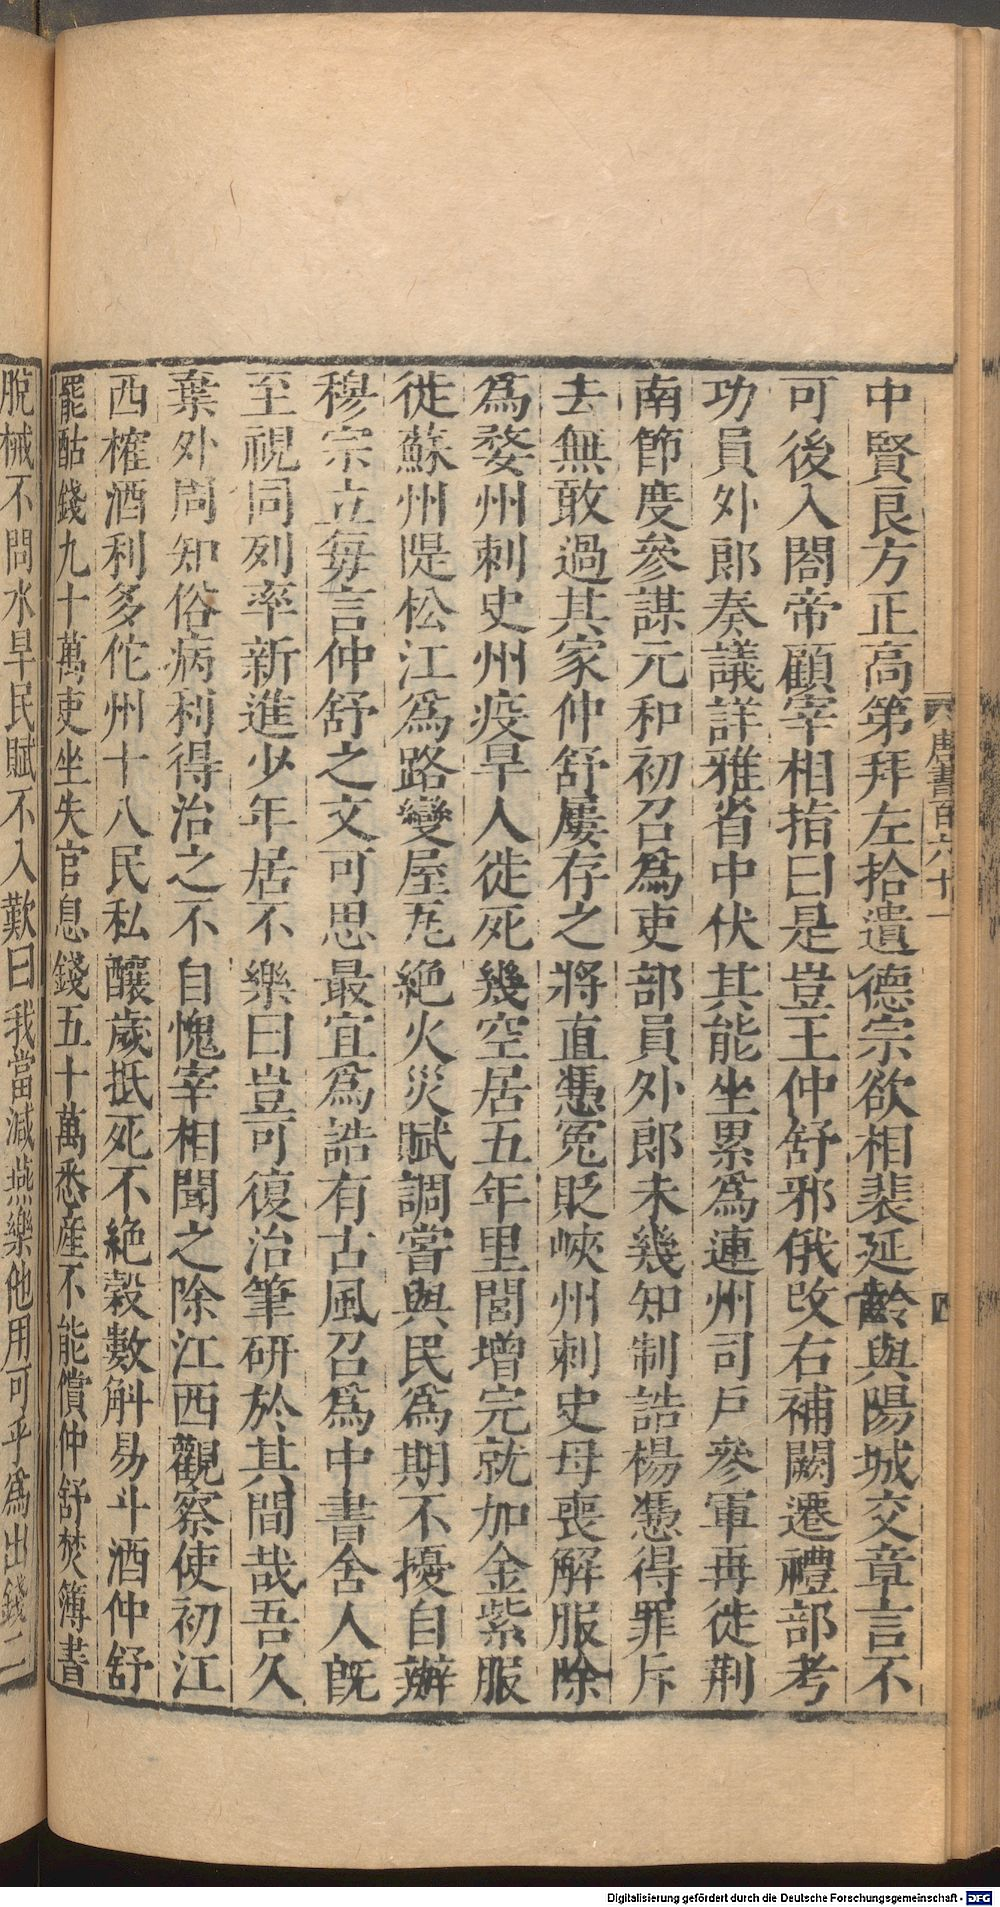 中賢良方正高第拜左拾遺德宗欲相裴延齡與陽城交章言不
可後入閤帝顧宰相指曰是豈王仲舒邪俄改右補闕遷禮部考
功員外郎奏議詳雅省中伏其能坐累爲連州司戶參軍再徙荆
南節度參謀元和初召爲吏部員外郎未幾知制誥楊憑得罪斥
去無敢過其家仲舒屢存之將直憑冤貶峽州刺史母喪解服除
爲婺州刺史州疫旱人徙死幾空居五年里閭增完就加金紫服
徙蘇州隄松江爲路變屋瓦絶火災賦調嘗與民爲期不擾自辦
穆宗立每言仲舒之文可思最宜爲誥有古風召爲中書舍人旣
至視同列率新進少年居不樂曰豈可復治筆研於其間哉吾久
葉外周知俗病利得治之不自愧宰相聞之除江西觀察使初江
西榷酒利多佗州十八民私釀歲抵死不絶穀數斛易斗酒仲舒
罷酤錢九十萬吏坐失官息錢五十萬悉產不能償仲舒焚簿書
脫械不問水旱民賦不入歎曰我當減燕樂他用可乎爲出錢二
唐書百六十一
四
Digitalisierung gefördert durch die Deutsche Forschungsgemeinschaft - DFG